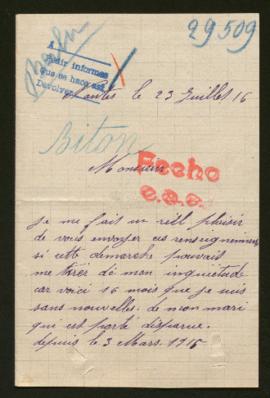 29509
Berlin
A
Pedir informes
que se hace est
Devolver
Nantes le 23 Juillet 16
Biton
Monsieur
Fecho
je me fait un réel plaisir
de vous envoyer ces renseignements
si cette démarche pouvait
me tirer de mon inquiétude
car voici 16 mois que je suis
sans nouvelles de mon mari
qui est porté disparue.
depuis le 3 Mars 1915